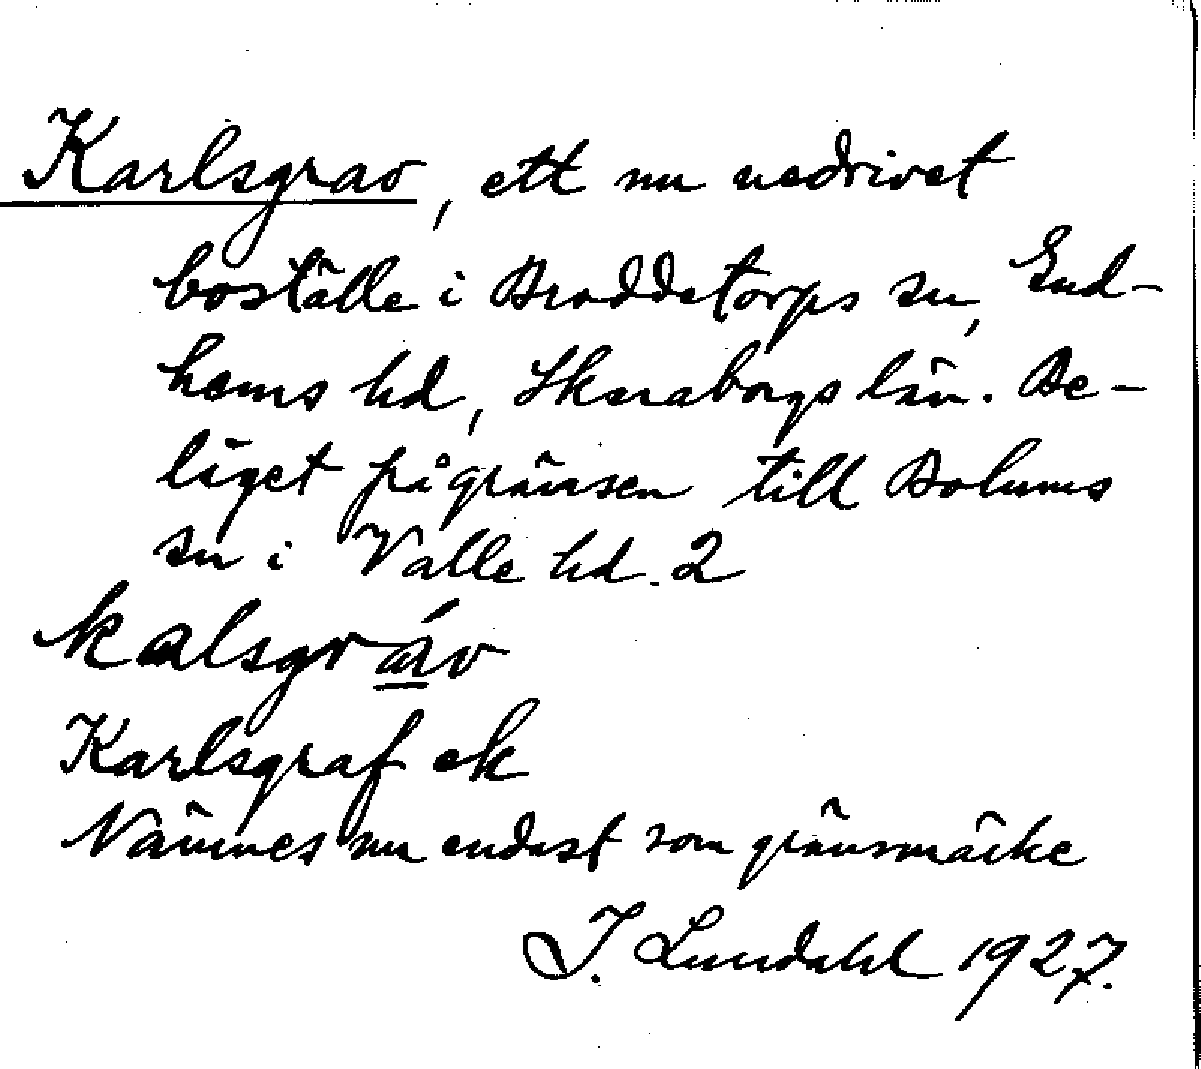 Karlsgrav, ett nu nedrivet
boställe i Broddetorps sn, Gud-
hems hd, Skaraborgs län. Be-
läget på gränsen till Bolums
sn i Valle hd. 2
kalsgráv
Karlsgraf ek
Nämnes nu endast som gränsmärke
I. Lundahl 1927.